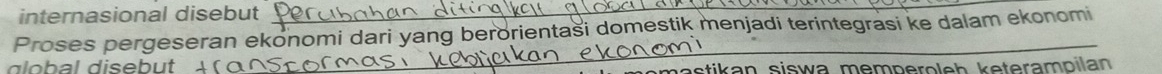 internasional disebut Perubahan ditingkat global
Proses pergeseran ekonomi dari yang berorientasi domestik menjadi terintegrasi ke dalam ekonomi
global disebut transformasi kebijakan ekonomi
siswa memperoleh keterampilan